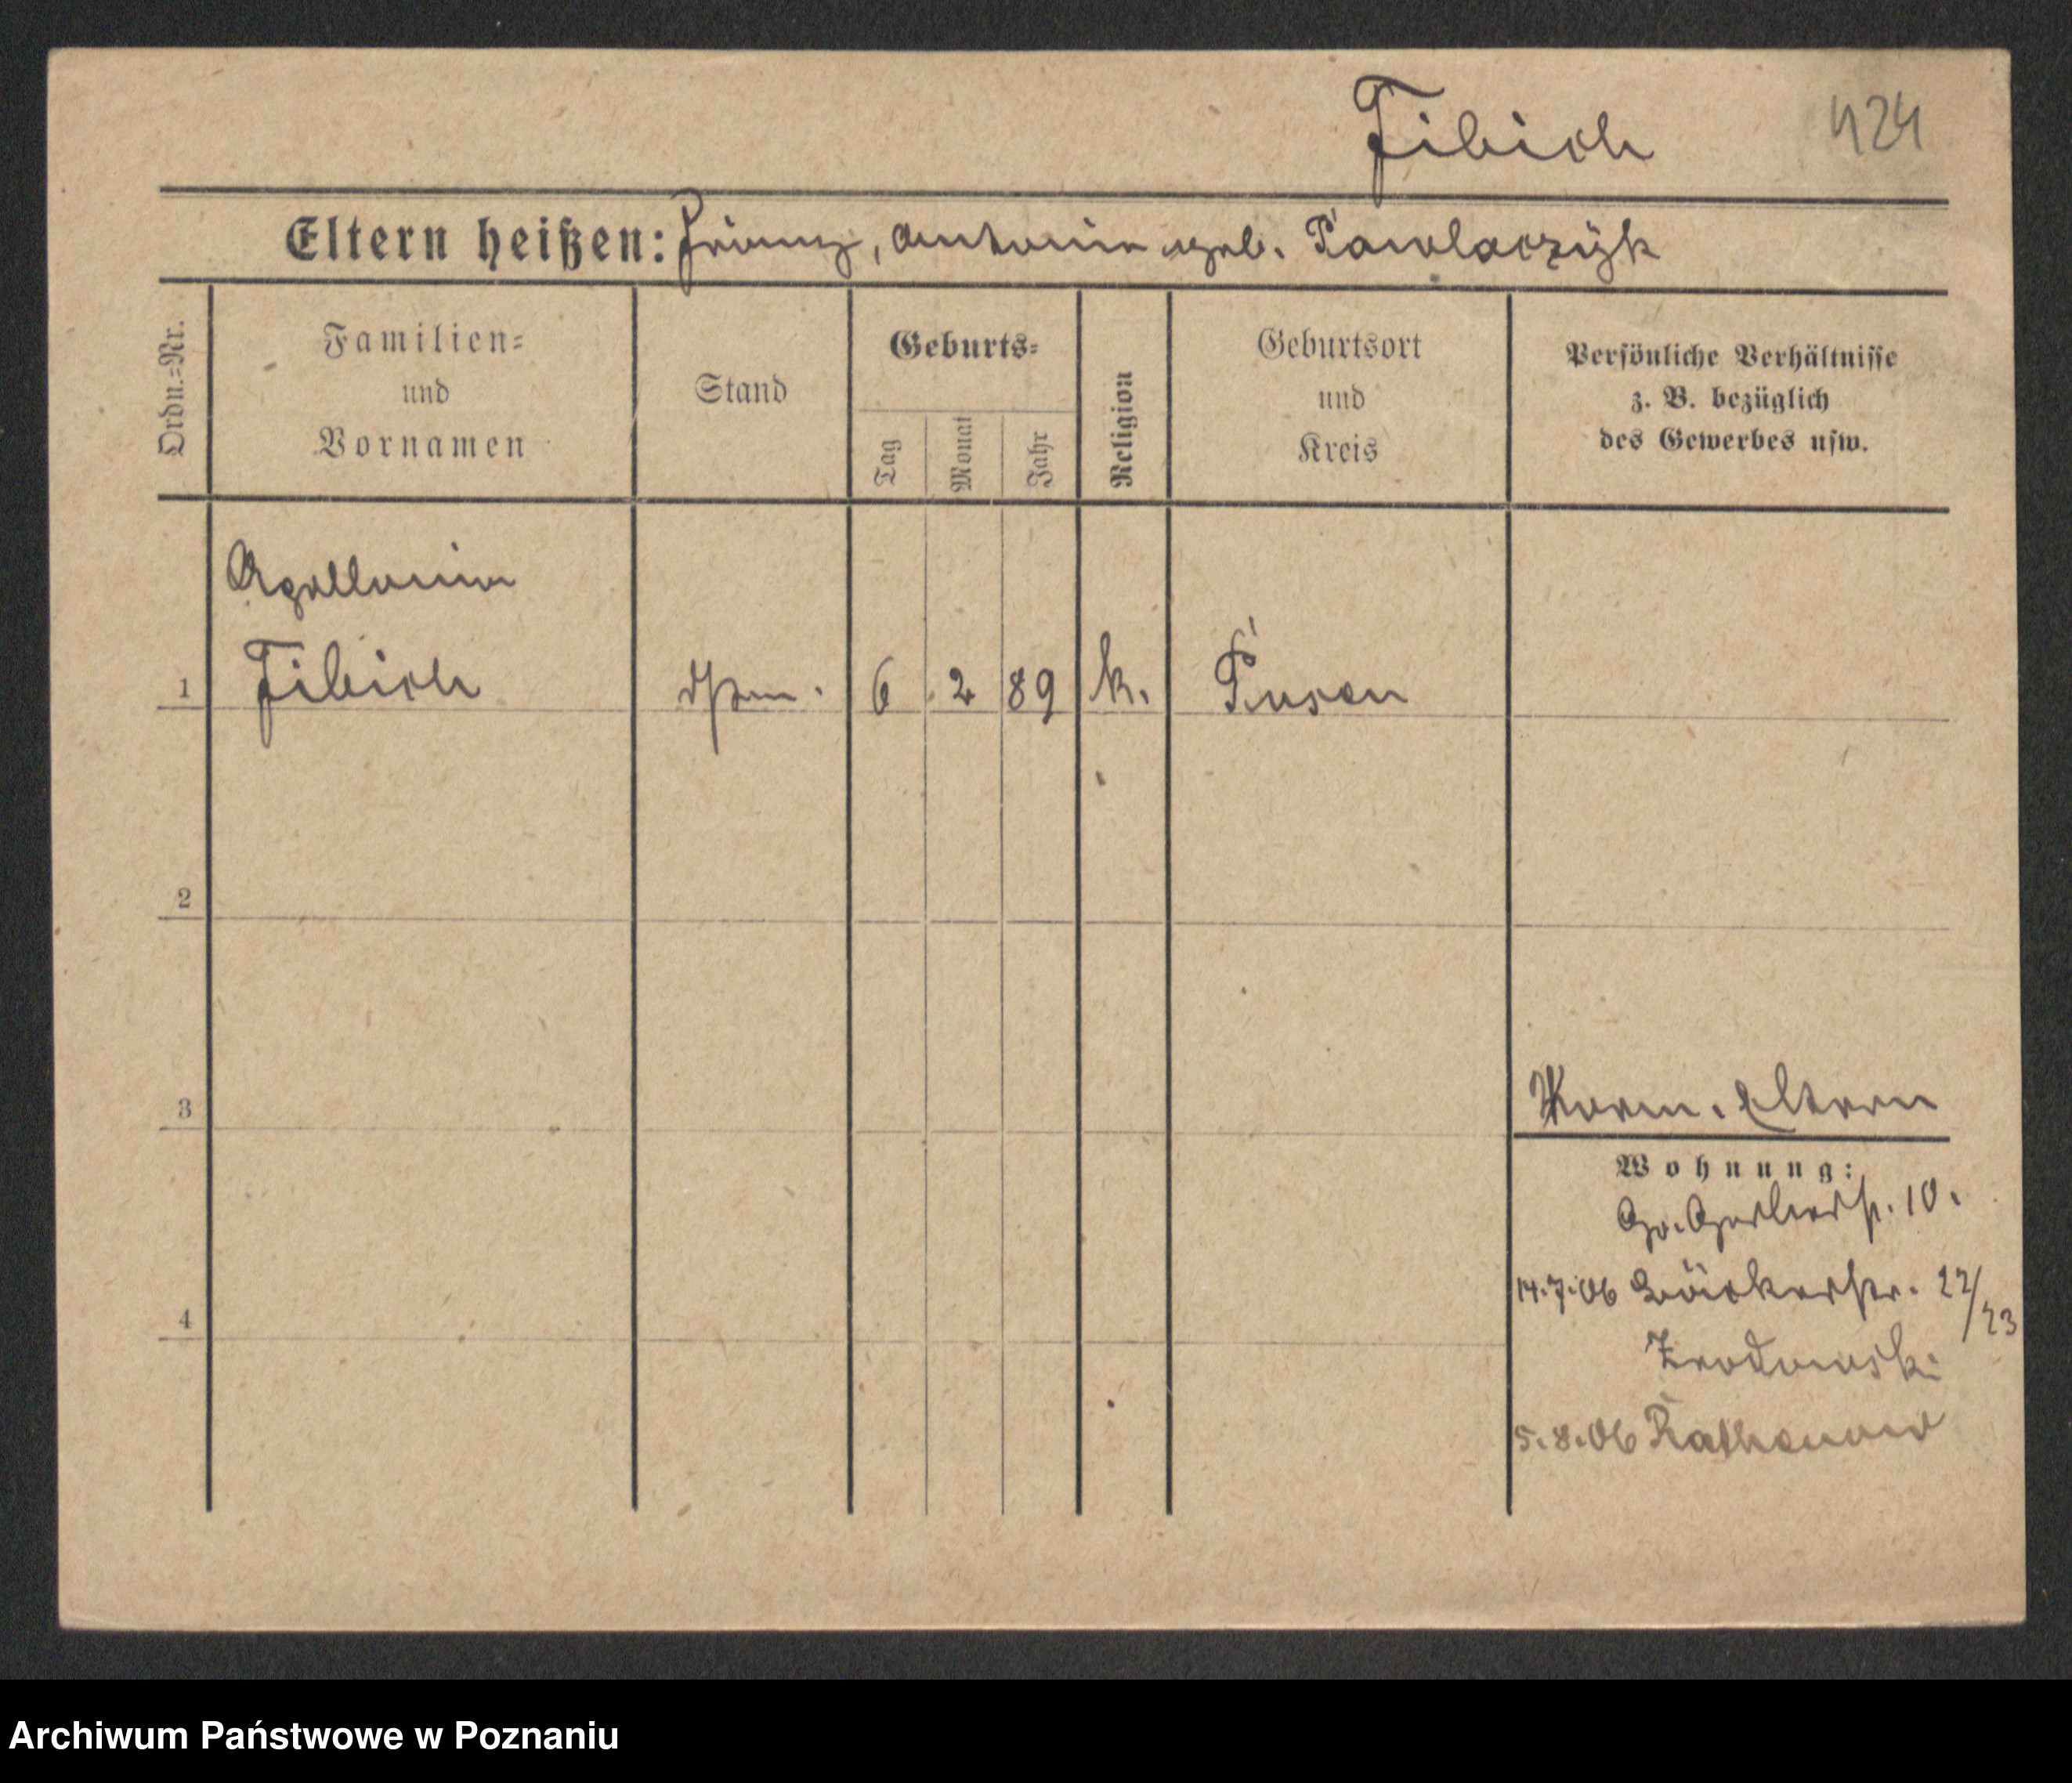 Fibich
424
Eltern heißen: Franz, Antonie geb. Pawlaczyk
Ordn.=Nr.
Familien=
und
Vornamen
Stand
Geburts=
Tag
Monat
Jahr
Religion
Geburtsort
und
Kreis
Persönliche Verhältnisse
z. B. bezüglich
des Gewerbes usw.
Apollonia
1 Fibich 6 2 89 k. Posen
2
3
Eltern
Wohnung:
Gr. Gerberstr. 10.
4
14.7.06 Bäckerstr. 22/23
5.8.06 Rathenow
Archiwum Państwowe w Poznaniu